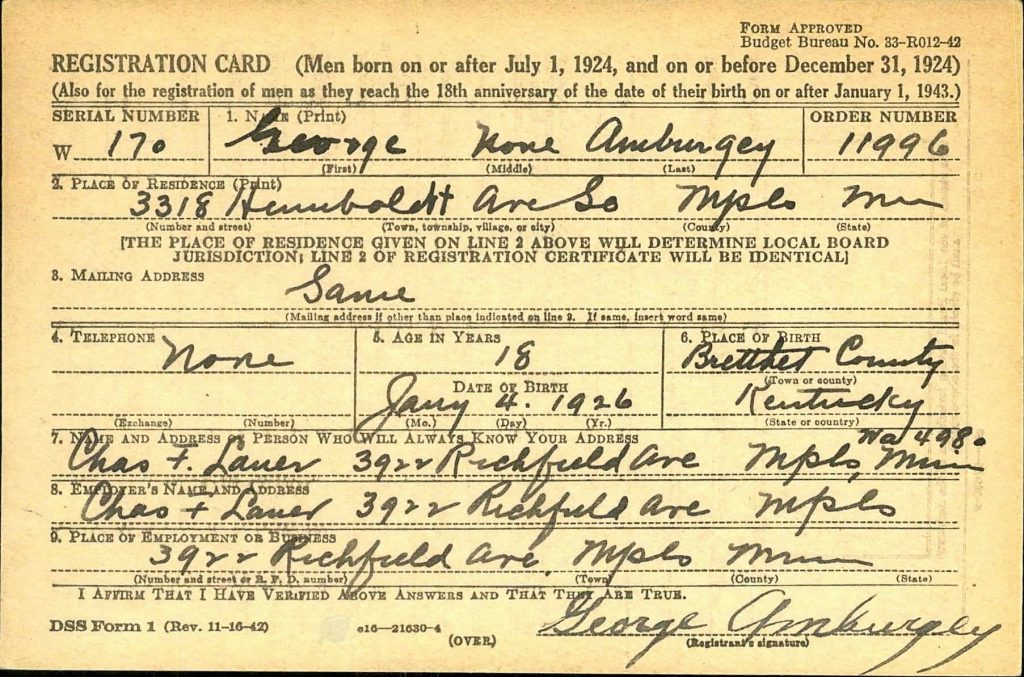 FORM APPROVED
Budget Bureau No. 33-R012-42
REGISTRATION CARD (Men born on or after July 1, 1924, and on or before December 31, 1924)
(Also for the registration of men as they reach the 18th anniversary of the date of their birth on or after January 1, 1943.)
SERIAL NUMBER 1. NAME (Print) ORDER NUMBER
W 170 George None Amburgey 11996
(First) (Middle) (Last)
2. PLACE OF RESIDENCE (Print)
3318 Humboldt Ave So Mpls Min
(Number and street) (Town, township, village, or city) (County) (State)
[THE PLACE OF RESIDENCE GIVEN ON LINE 2 ABOVE WILL DETERMINE LOCAL BOARD
JURISDICTION; LINE 2 OF REGISTRATION CERTIFICATE WILL BE IDENTICAL]
3. MAILING ADDRESS
Same
(Mailing address if other than place indicated on line 2. If same, insert word same)
4. TELEPHONE 5. AGE IN YEARS 6. PLACE OF BIRTH
None 18 Bretthet County
(Town or county)
DATE OF BIRTH
Jany 4. 1926 Kentucky
(Exchange) (Number) (Mo.) (Day) (Yr.) (State or country)
7. NAME AND ADDRESS OF PERSON WHO WILL ALWAYS KNOW YOUR ADDRESS Wa 4980
Chas F. Lauer 3922 Richfield Ave Mpls, Minn
8. EMPLOYER'S NAME AND ADDRESS
Chas F Lauer 3922 Richfield Ave Mpls
9. PLACE OF EMPLOYMENT OR BUSINESS
3922 Richfield Ave. Mpls Minn
(Number and street or R. F. D. number) (Town) (County) (State)
I AFFIRM THAT I HAVE VERIFIED ABOVE ANSWERS AND THAT THEY ARE TRUE.
DSS Form 1 (Rev. 11-16-42) c16—21630-4 (OVER) George Amburgey
(Registrant's signature)